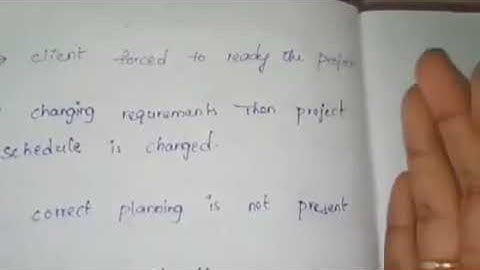 client forced to ready the
changing requrements Then project
schedule is changed.
correct planning is not present